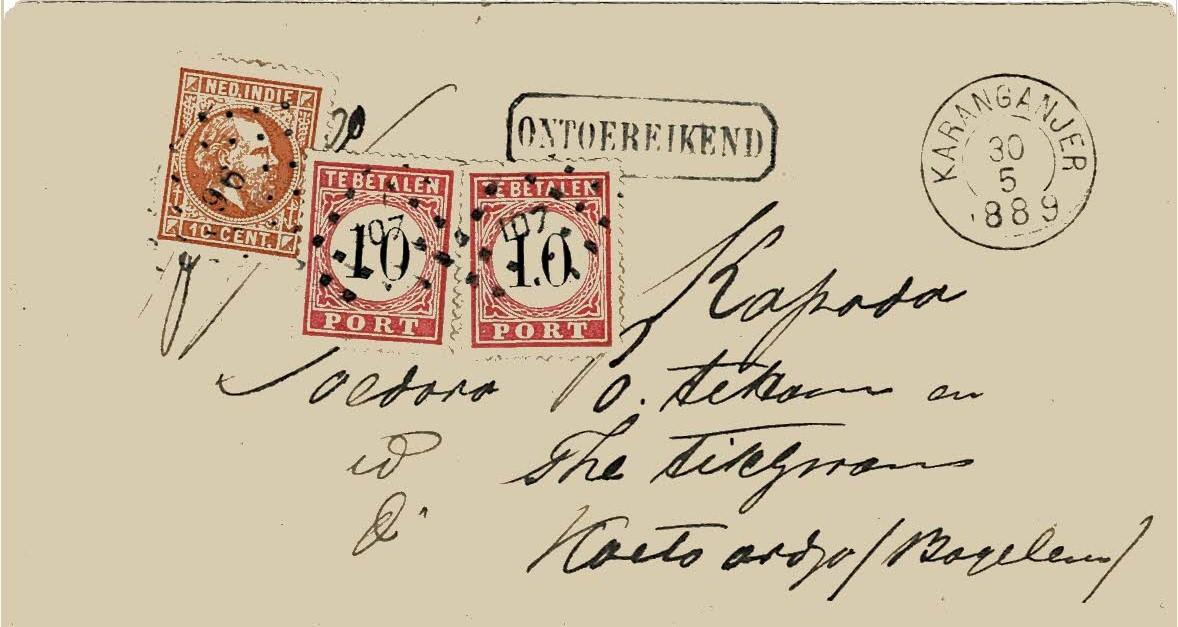 NED. INDIE
96
10 CENT.
TE BETALEN
107
10
PORT
TE BETALEN
107
10
PORT
ONTOEREIKEND
KARANGANJER
30
5
1889
Kapada
Soedara O. Tekoan en
The
di Koetoardjo / Bagelen /